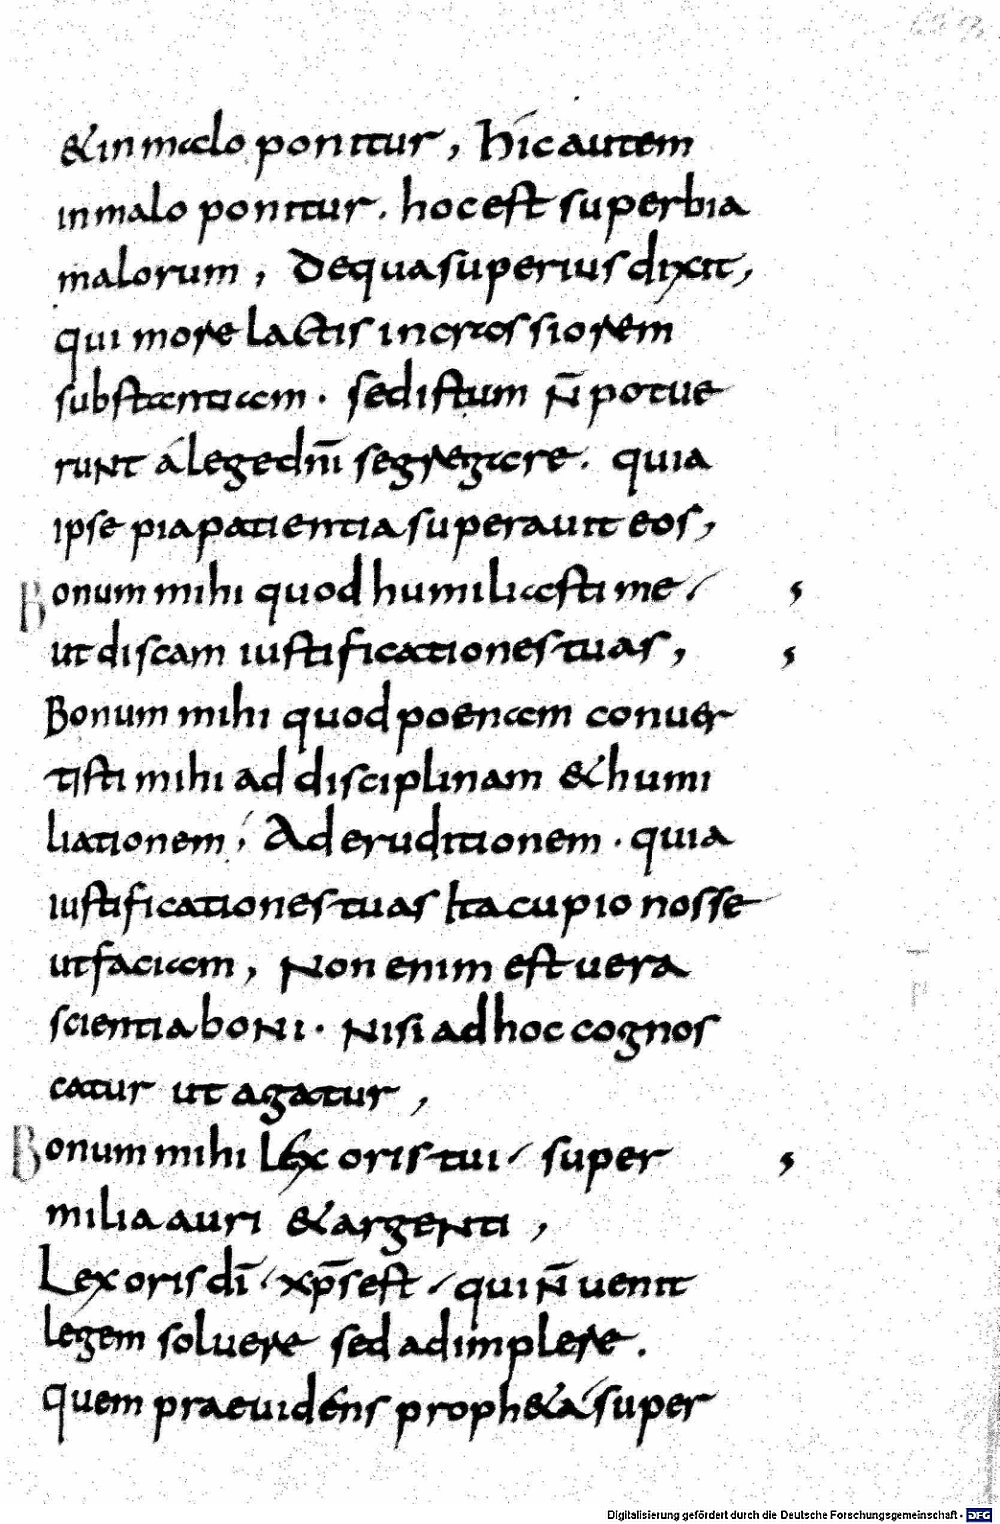 &in malo ponitur, hic autem
in malo ponitur. hoc est superbia
malorum, De qua superius dixit,
qui more lactis in crossiorem
substantiam. sed istum n̄ potue
runt á lege dn̄i segregare. quia
ipse pia patientia superauit eos,
Bonum mihi quod humiliasti me /
ut discam iustificationes tuas,
Bonum mihi quod poenam conuer
tisti mihi ad disciplinam & humi
liationem; Ad eruditionem. quia
iustificationes tuas ita cupio nosse
ut faciam, Non enim est uera
scientia boni. Nisi ad hoc cognos
catur ut agatur,
Bonum mihi lex oris tui / super
milia auri & argenti,
Lex oris dī / xp̄s est / qui n̄ uenit
legem soluere sed adimplere.
quem praeuidens proph&a super
Digitalisierung gefördert durch die Deutsche Forschungsgemeinschaft - DFG